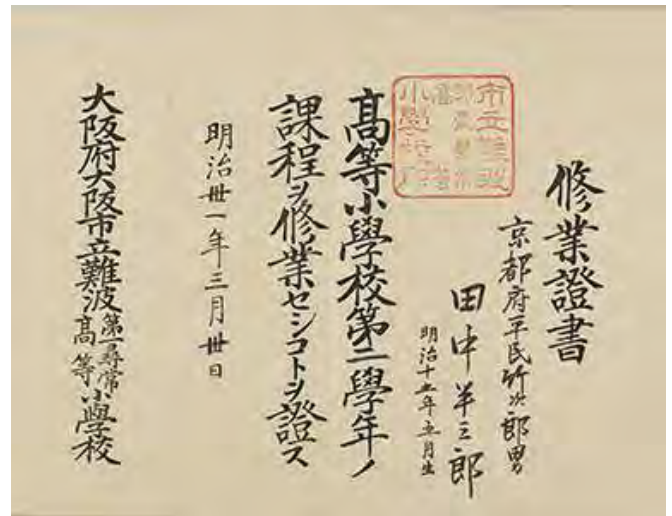 修業證書
京都府平民竹次郎男
田中半三郎
明治十五年五月生
高等小學校第二學年ノ
課程ヲ修業セシコトヲ證ス
明治卅一年三月卅日
大阪府大阪市立難波第一尋常高等小學校
市立難波
小學校